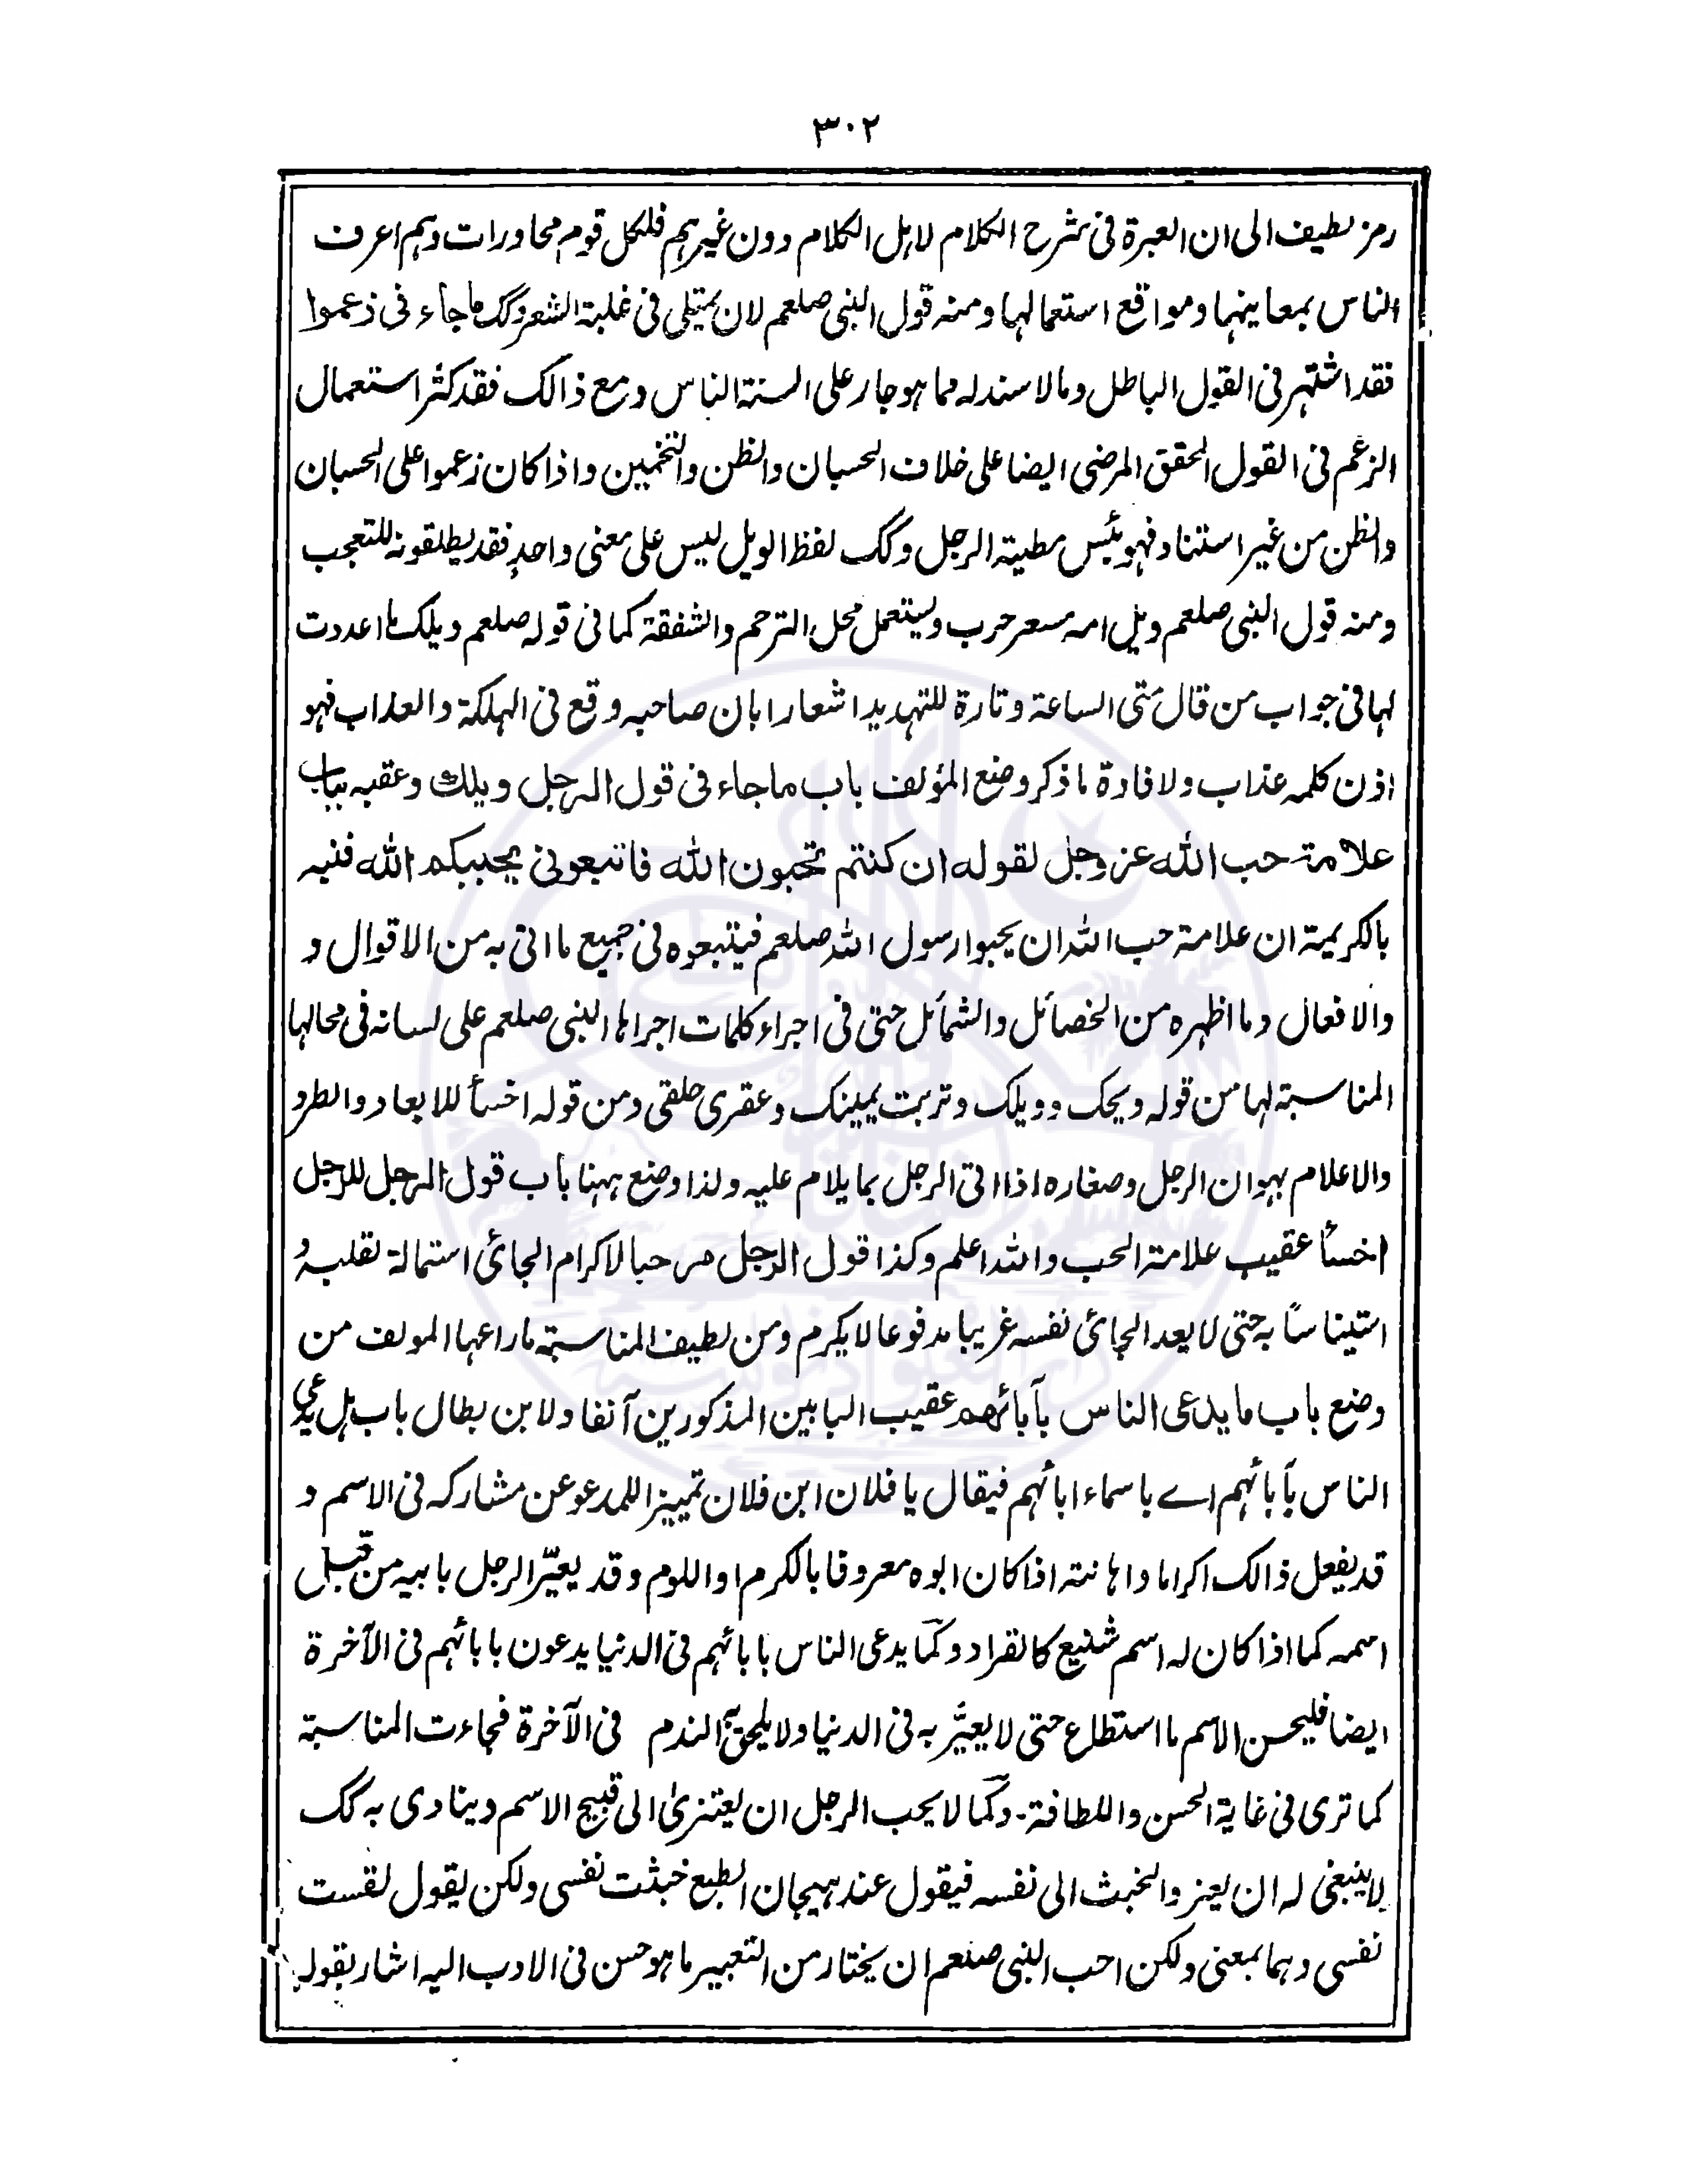 ٣٠٢
رمز لطيف الى ان العبرة فى شرح الكلام لاہل الكلام دون غيرہم فلكل قوم محاورات وہم اعرف
الناس بمعانيہا ومواقع استعمالہا ومنہ قول النبى صلعم لان يمتلى فى غلبة الشعر وكك ما جاء فى زعموا
فقد اشتہر فى القول الباطل ومالا سند لہ مما ہو جار على السنة الناس ومع ذالك فقد كثر استعمال
الزعم فى القول المحقق المرضى ايضا على خلاف الحسبان والظن والتخمين واذا كان زعموا على الحسبان
والظن من غير استناد فہو بئس مطية الرجل وكك لفظ الويل ليس على معنى واحدٍ فقد يطلقونہ للتعجب
ومنہ قول النبى صلعم ويل امہ مسعر حرب ويستعمل محل الترحم والشفقة كما فى قولہ صلعم ويلك ما اعددت
لہا فى جواب من قال متى الساعة وتارة للتہديد اشعارا بان صاحبہ وقع فى الہلكة والعذاب فہو
اذن كلمہ عذاب ولافادة ما ذكر وضع المؤلف باب ماجاء فى قول الرجل ويلك وعقبہ بباب
علامة حب الله عز وجل لقولہ ان كنتم تحبون الله فاتبعونى يحببكم الله فنبہ
بالكريمة ان علامة حب الله ان يحبوا رسول الله صلعم فيتبعوه فى جميع ما اتى بہ من الاقوال و
والافعال وما اظہره من الخصائل والشمائل حتى فى اجراء كلمات اجراہا النبى صلعم على لسانہ فى محالہا
المناسبة لہا من قولہ ويحك وويلك وتربت يمينك وعقرى حلقى ومن قولہ اخسأ للابعاد والطرد
والاعلام بہوان الرجل وصغاره اذا اتى الرجل بما يلام عليہ ولذا وضع ہہنا باب قول الرجل للرجل
اخسأ عقيب علامة الحب والله اعلم وكذا قول الرجل مرحبا لاكرام الجائى استمالة لقلبہ و
استيناسًا بہ حتى لا يعد الجائى نفسہ غريبا مدفوعا لا يكرم ومن لطيف المناسبة ماراعہا المولف من
وضع باب ما يدعى الناس بآبائهم عقيب البابين المذكورين آنفا ولابن بطال باب ہل يدعى
الناس بآبائہم اے باسماء ابائہم فيقال يا فلان ابن فلان تمييزا للمدعو عن مشاركہ فى الاسم و
قد يفعل ذالك اكراما واہانتہ اذا كان ابوه معروفا بالكرم او اللوم وقد يعيّر الرجل بابيہ من قبل
اسمہ كما اذا كان لہ اسم شنيع كالقراد وكما يدعى الناس بابائہم فى الدنيا يدعون بابائہم فى الآخرة
ايضا فليحسن الاسم ما استطاع حتى لا يعيَّر بہ فى الدنيا ولا يلحق بہ الندم فى الآخرة فجاءت المناسبة
كما ترى فى غاية الحسن واللطافة۔ وكما لا يحب الرجل ان يعتزىٰ الى قبيح الاسم وينادى بہ كك
لا ينبغى لہ ان يعزو الخبث الى نفسہ فيقول عند ہيجان الطبع خبثت نفسى ولكن ليقول لقست
نفسى وہما بمعنى ولكن احب النبى صلعم ان يختار من التعبير ما ہو حسن فى الادب اليہ اشار بقولہ